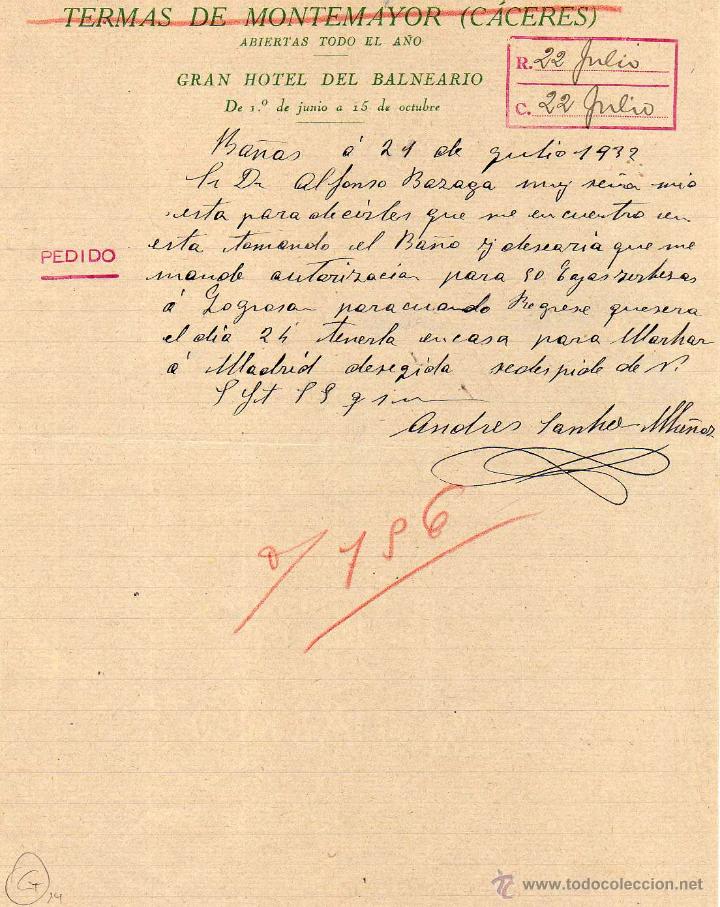 TERMAS DE MONTEMAYOR (CÁCERES)
ABIERTAS TODO EL AÑO
GRAN HOTEL DEL BALNEARIO
De 1.º de junio a 15 de octubre
R. 22 Julio
C. 22 Julio
PEDIDO
Bañas á 21 de gulio 1932
Sr Dn Alfonso Bazaga muy seña mio
esta para decirles que me encuentro en
esta tomando el Baño y desearia que me
mande autorizacian para 50 Cajas
á Logrosan para cuando Regrese que sera
el dia 24 tenerla en casa para Marhar
á Madrid desegida se despide de V.
Andres Sanhes Muñoz
196
G
todocoleccion
www.todocoleccion.net